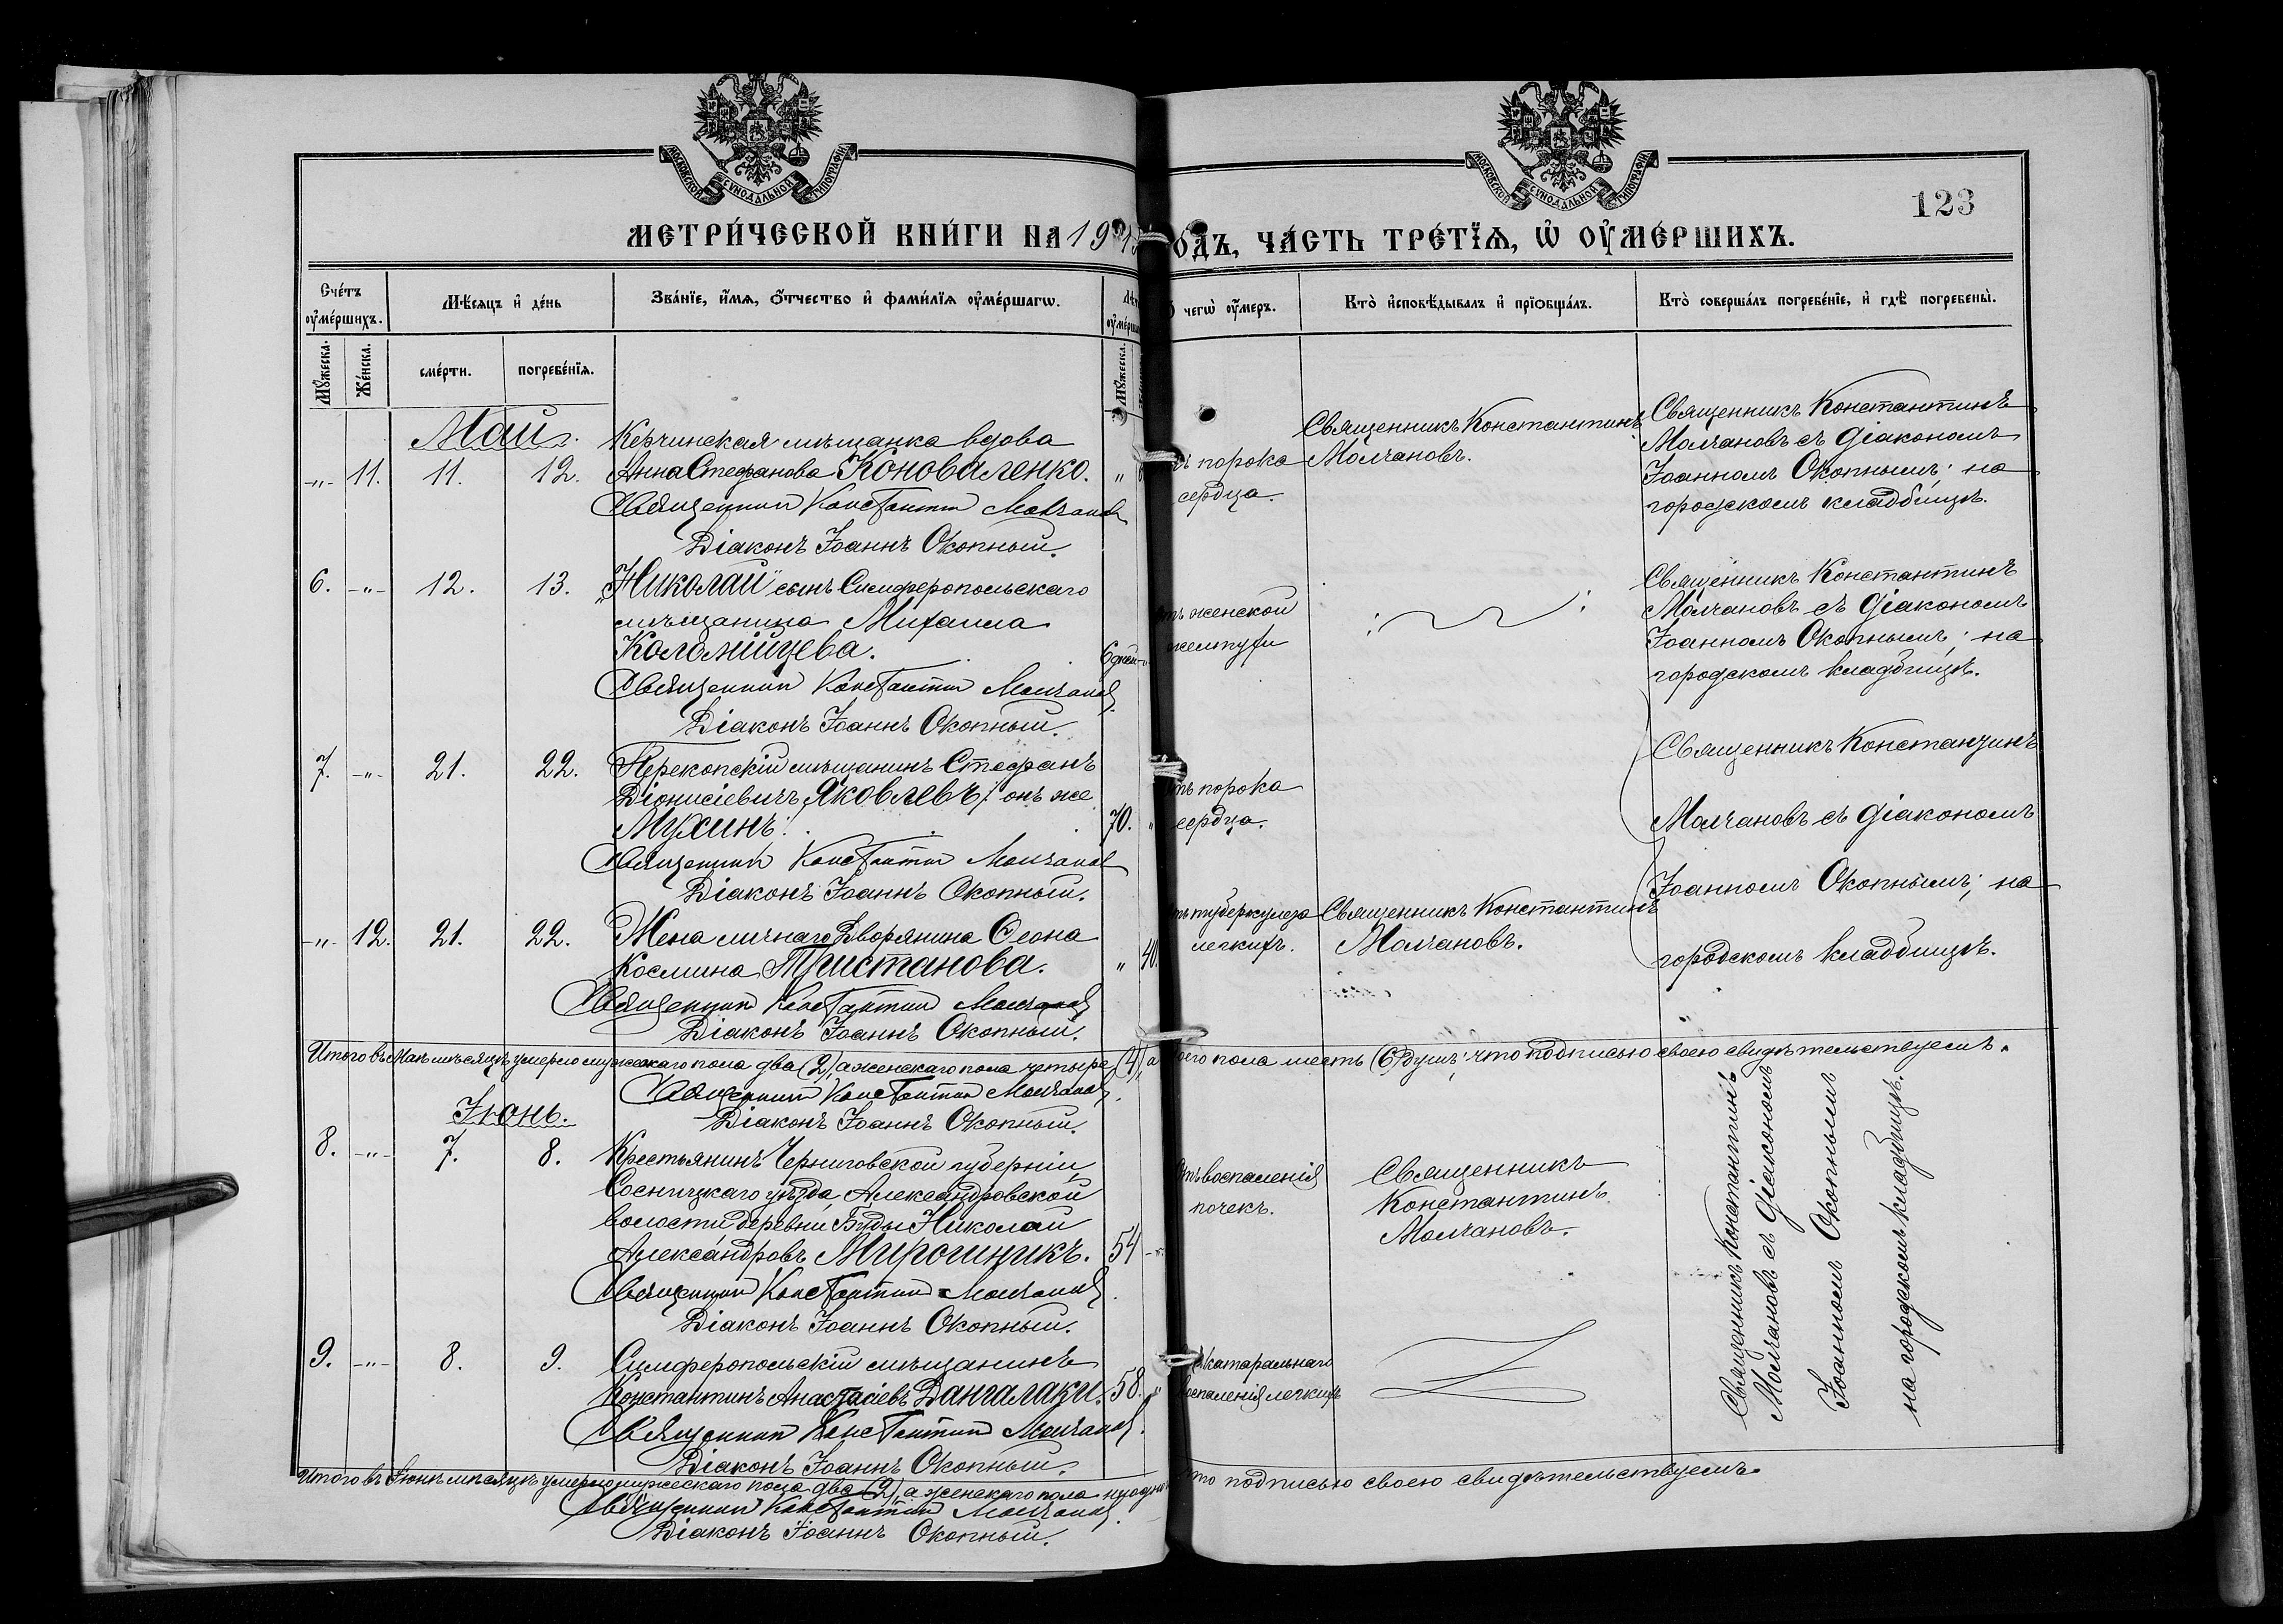 МОСКОВСКОЙ СѴНОДАЛЬНОЙ ТИПОГРАФІИ
МОСКОВСКОЙ СѴНОДАЛЬНОЙ ТИПОГРАФІИ
123
МЕТРИ́ЧЕСКОЙ КНИ́ГИ НА 19
ОДЪ, ЧА́СТЬ ТРЕ́ТЇѦ, Ѡ҆ ОУ҆МЕ́РШИХЪ.
Сче́тъ оу҆ме́ршихъ.
Мѣ́сяцъ и҆ де́нь
Зва́нїе, и҆́мя, ѻ҆́тчество и҆ фами́лїя оу҆ме́ршагѡ.
чегѡ̀ оу҆́меръ.
Кто̀ и҆сповѣ́дывалъ и҆ прїобща́лъ.
Кто̀ соверша́лъ погребе́нїе, и҆ гдѣ̀ погребены̀.
Мꙋ́жеска.
Же́нска.
сме́рти.
погребе́нїя.
Мꙋ́жеска.
Май.
Керчинская мѣщанка вдова
-„- 11. 11. 12. Анна Стефанова Коноваленко. „
Священникъ Константинъ Молчановъ
Діаконъ Іоаннъ Окопный.
порока
сердца.
Священникъ Константинъ
Молчановъ.
Священникъ Константинъ
Молчановъ съ діакономъ
Іоанномъ Окопнымъ; на
городскомъ кладбищѣ.
6. -„- 12. 13. „Николай" сынъ Симферопольскаго
мѣщанина Михаила
Коломійцева. 6 дней
Священникъ Константинъ Молчановъ
Діаконъ Іоаннъ Окопный.
женской
желтухи
Священникъ Константинъ
Молчановъ съ діакономъ
Іоанномъ Окопнымъ; на
городскомъ кладбищѣ.
7. -„- 21. 22. Перекопскій мѣщанинъ Стефанъ
Діонисіевичъ Яковлевъ /: онъ же
Мухинъ:/ 70. „
Священникъ Константинъ Молчановъ
Діаконъ Іоаннъ Окопный.
порока
сердца.
Священникъ Константинъ
Молчановъ съ діакономъ
Іоанномъ Окопнымъ; на
городскомъ кладбищѣ.
-„- 12. 21. 22. Жена личнаго Дворянина Ѳеона
Космина Тристанова. „ 40.
Священникъ Константинъ Молчановъ
Діаконъ Іоаннъ Окопный.
туберкулеза
легкихъ.
Священникъ Константинъ
Молчановъ.
Итого въ Маѣ мѣсяцѣ умерло мужескаго пола два (2), а женскаго пола четыре (4), а
оего пола шесть (6) душъ; что подписью своею свидѣтельствуемъ.
Священникъ Константинъ Молчановъ.
Діаконъ Іоаннъ Окопный.
Іюнь.
8. -„- 7. 8. Крестьянинъ Черниговской губерніи,
Сосницкаго уѣзда, Александровской
волости деревни Буды Николай
Александровъ Мирошникъ. 54 -„-
Священникъ Константинъ Молчановъ.
Діаконъ Іоаннъ Окопный.
воспаленія
почекъ.
Священникъ
Константинъ
Молчановъ.
Священникъ Константинъ
Молчановъ съ діакономъ
Іоанномъ Окопнымъ
на городскомъ кладбищѣ.
9. -„- 8. 9. Симферопольскій мѣщанинъ
Константинъ Анастасіевъ Дангалаки. 58. „
Священникъ Константинъ Молчановъ.
Діаконъ Іоаннъ Окопный.
катаральнаго
воспаленія легкихъ
Итого въ Іюнѣ мѣсяцѣ умерло мужескаго пола два (2), а женскаго пола ни одно
что подписью своею свидѣтельствуемъ
Священникъ Константинъ Молчановъ.
Діаконъ Іоаннъ Окопный.